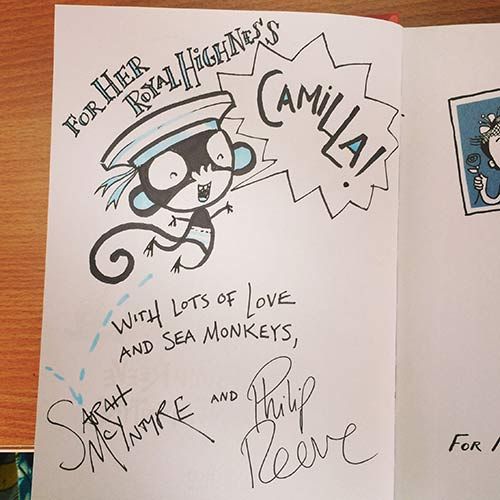 FOR HER
ROYAL HIGHNESS
CAMILLA!
WITH LOTS OF LOVE
AND SEA MONKEYS,
SARAH
MCINTYRE AND Philip
Reeve
FOR